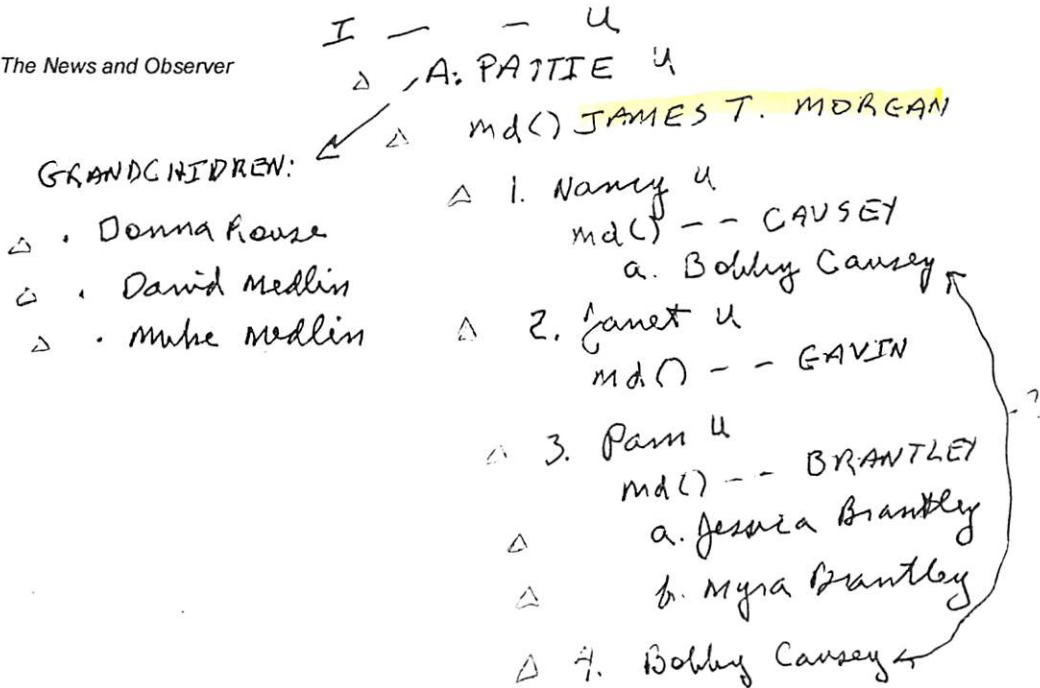 I — - U
The News and Observer
△ A: PATTIE U
△ md() JAMES T. MORGAN
GRANDCHIDREN:
△ · Donna Rouse
△ · David Medlin
△ · Mike Medlin
△ 1. Nancy U
md() - - CAUSEY
a. Bobby Causey
△ 2. Janet U
md() - - GAVIN
- ?
△ 3. Pam U
md() - - BRANTLEY
△ a. Jessica Brantley
△ b. Myra Brantley
△ 4. Bobby Causey